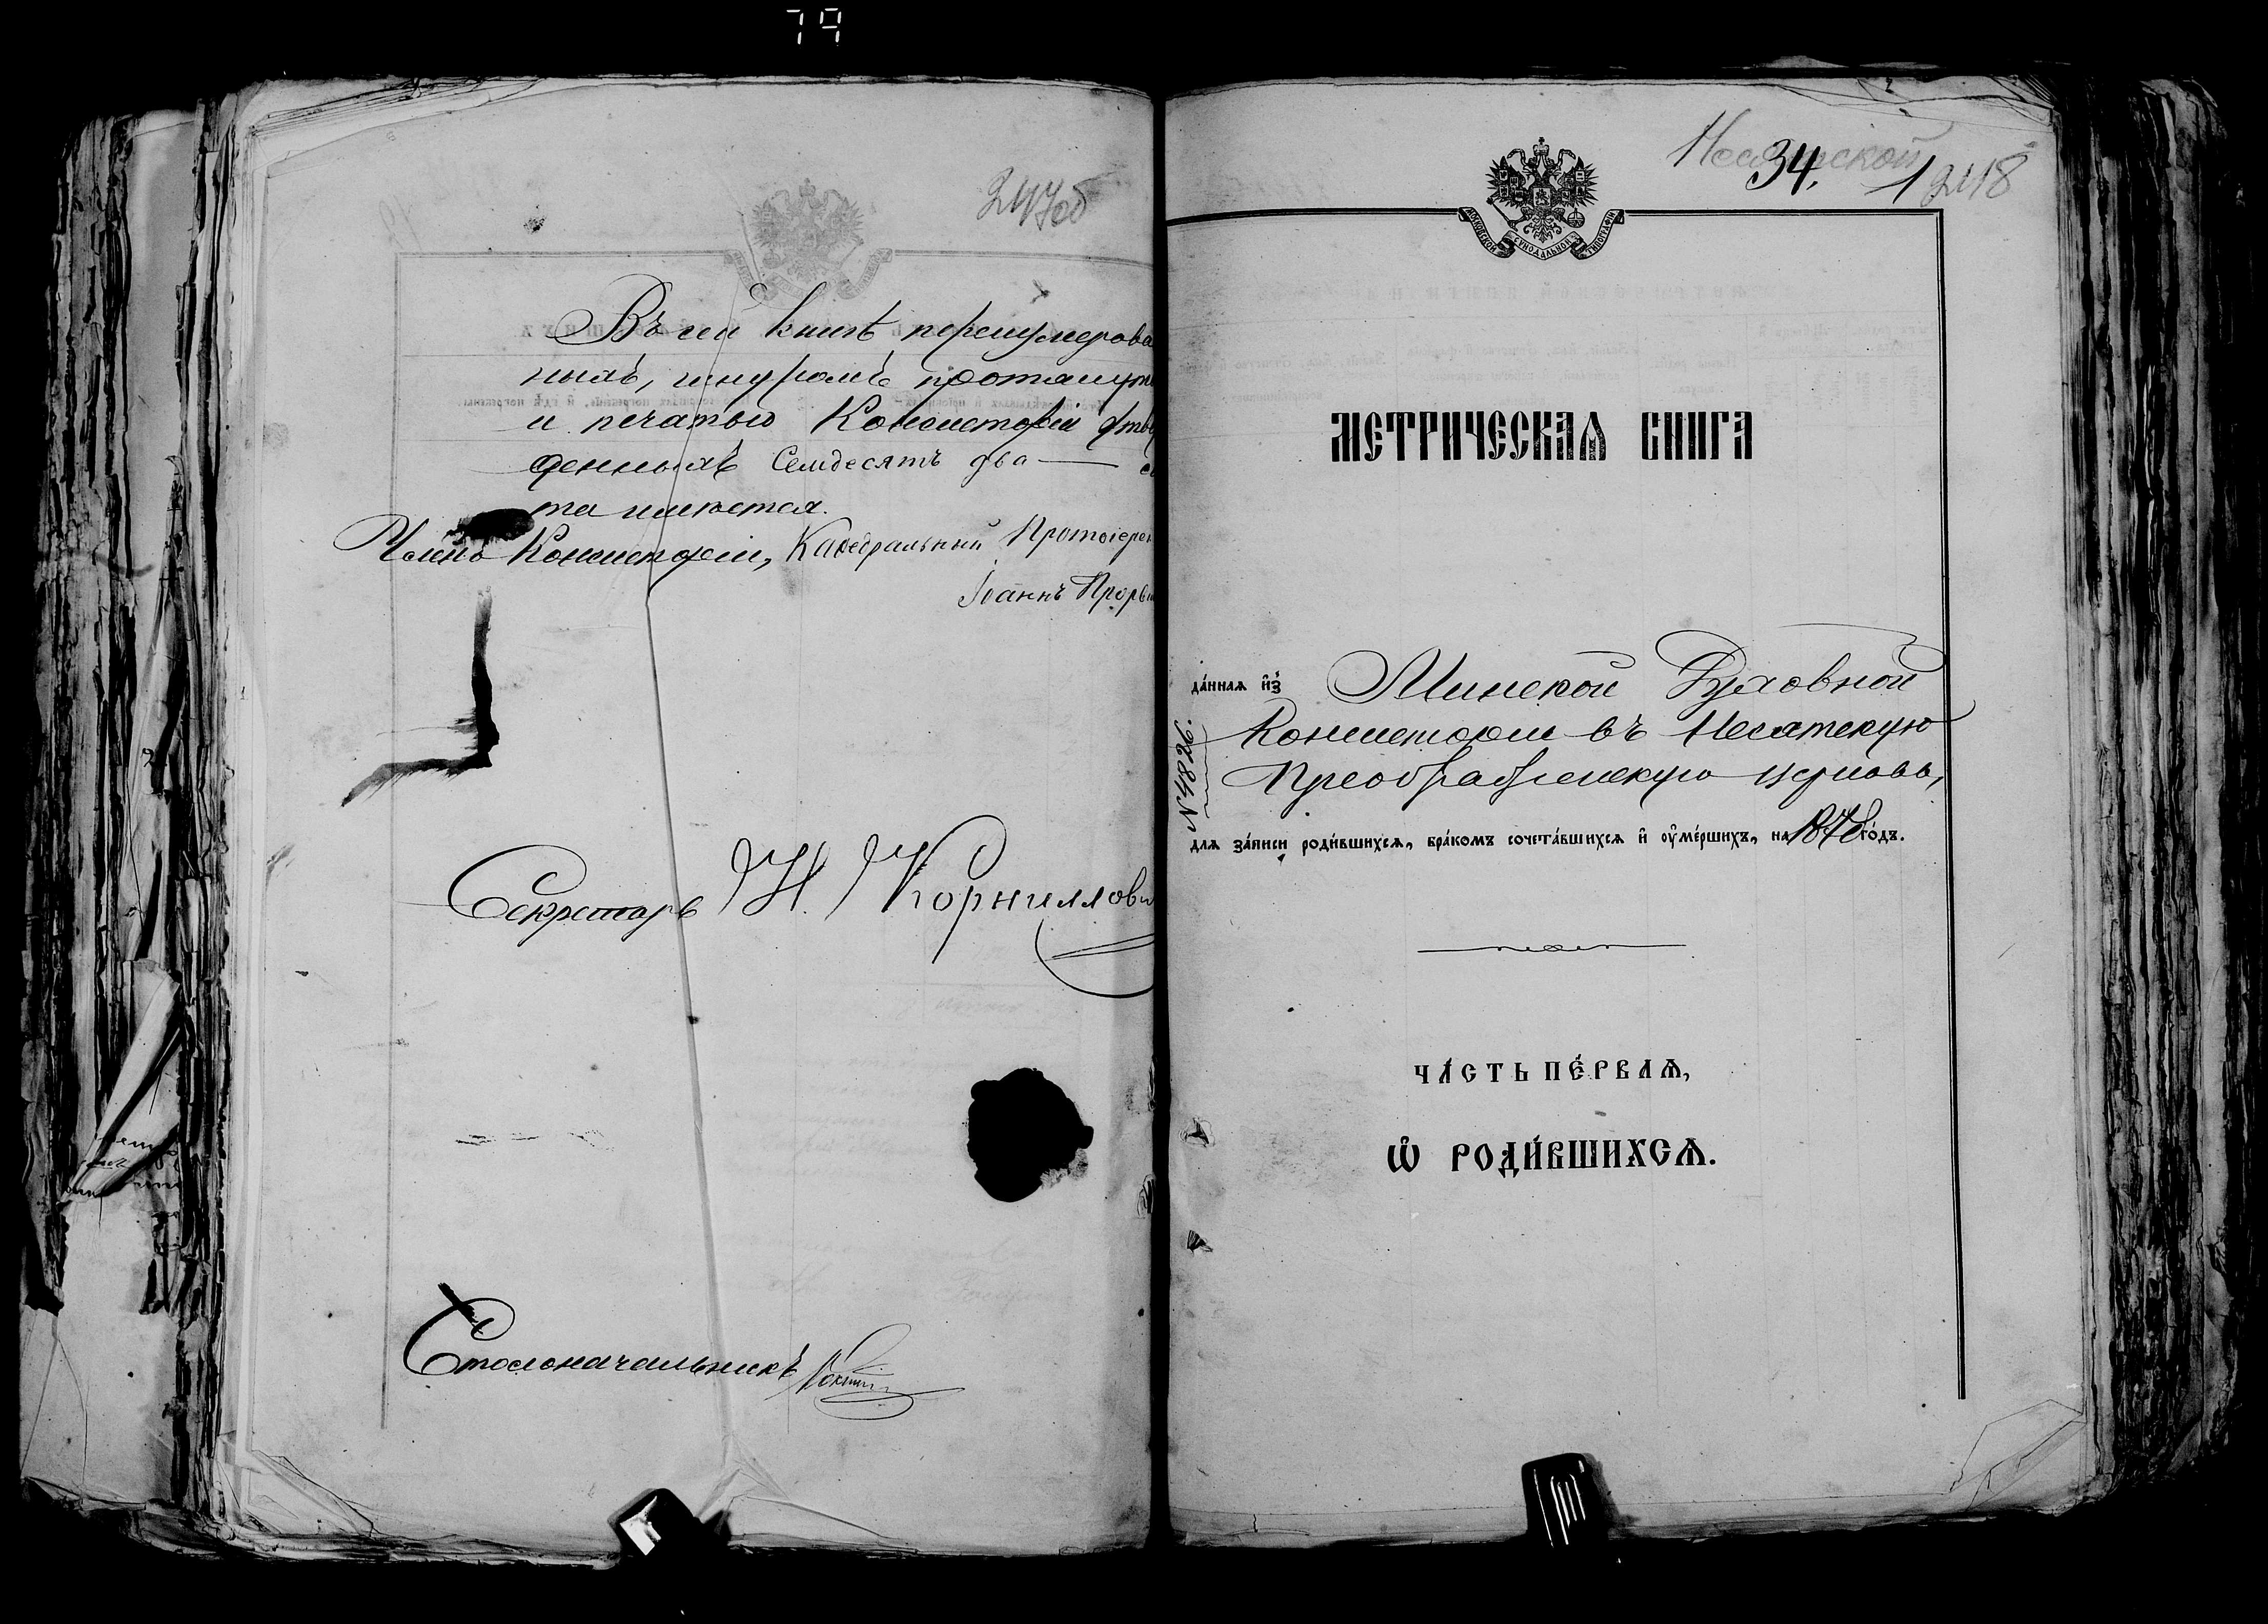 79
247об
Въ сей книгѣ перенумерова
ныхъ, шнуромъ протянут
и печатью Консисторіи утв
денныхъ Семдесятъ два —
та имѣется.
Членъ Консисторіи, Каѳедральный Протоіере
Іоаннъ
Секретарь Н. Корниллови
Столоначальникъ
34.
1
248
МОСКОВСКОЙ СѴНОДАЛЬНОЙ ТИПОГРАФІИ
МЕТРИЧЕСКАѦ КНИГА
да́ннаѧ и҆з̾ Минской Духовной
Консисторіи въ Несятскую
Преображенскую церковь,
№ 4826.
для за́писи роди́вшихсѧ, бра́комъ сочета́вшихсѧ и҆ ᲂу҆ме́ршихъ, на 1878 го́дъ.
ЧА́СТЬ ПЕ́РВАѦ,
Ѡ҆ РОДИ́ВШИХСѦ.